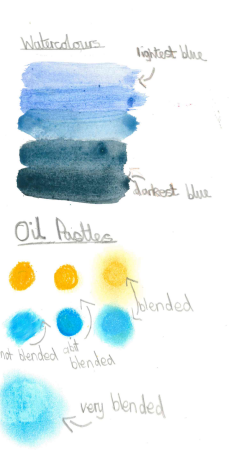 Watercolours
lightest blue
darkest blue
Oil Pastles
blended
not blended
abt
blended
very blended